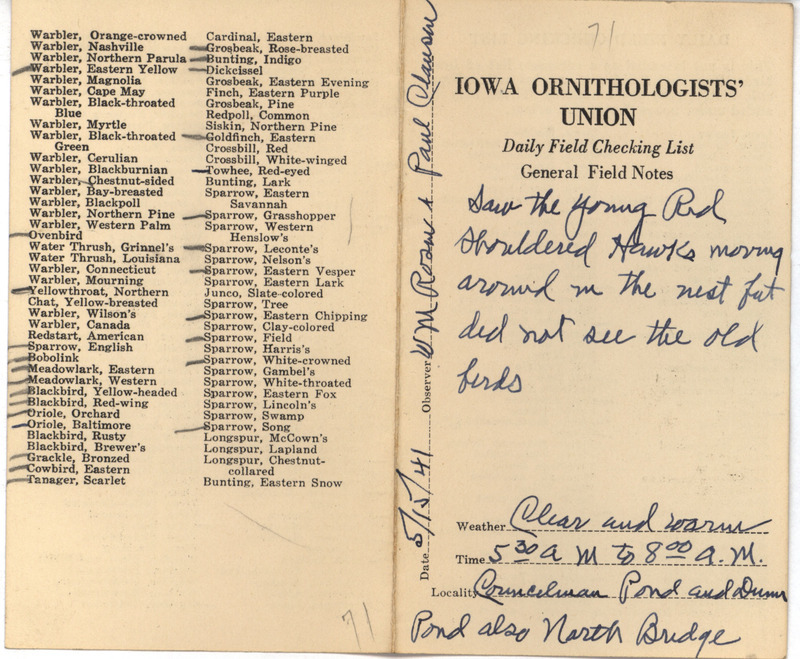 Warbler, Orange-crowned
Warbler, Nashville
Warbler, Northern Parula
Warbler, Eastern Yellow
Warbler, Magnolia
Warbler, Cape May
Warbler, Black-throated
Blue
Warbler, Myrtle
Warbler, Black-throated
Green
Warbler, Cerulian
Warbler, Blackburnian
Warbler, Chestnut-sided
Warbler, Bay-breasted
Warbler, Blackpoll
Warbler, Northern Pine
Warbler, Western Palm
Ovenbird
Water Thrush, Grinnel's
Water Thrush, Louisiana
Warbler, Connecticut
Warbler, Mourning
Yellowthroat, Northern
Chat, Yellow-breasted
Warbler, Wilson's
Warbler, Canada
Redstart, American
Sparrow, English
Bobolink
Meadowlark, Eastern
Meadowlark, Western
Blackbird, Yellow-headed
Blackbird, Red-wing
Oriole, Orchard
Oriole, Baltimore
Blackbird, Rusty
Blackbird, Brewer's
Grackle, Bronzed
Cowbird, Eastern
Tanager, Scarlet
Cardinal, Eastern
Grosbeak, Rose-breasted
Bunting, Indigo
Dickcissel
Grosbeak, Eastern Evening
Finch, Eastern Purple
Grosbeak, Pine
Redpoll, Common
Siskin, Northern Pine
Goldfinch, Eastern
Crossbill, Red
Crossbill, White-winged
Towhee, Red-eyed
Bunting, Lark
Sparrow, Eastern
Savannah
Sparrow, Grasshopper
Sparrow, Western
Henslow's
Sparrow, Leconte's
Sparrow, Nelson's
Sparrow, Eastern Vesper
Sparrow, Eastern Lark
Junco, Slate-colored
Sparrow, Tree
Sparrow, Eastern Chipping
Sparrow, Clay-colored
Sparrow, Field
Sparrow, Harris's
Sparrow, White-crowned
Sparrow, Gambel's
Sparrow, White-throated
Sparrow, Eastern Fox
Sparrow, Lincoln's
Sparrow, Swamp
Sparrow, Song
Longspur, McCown's
Longspur, Lapland
Longspur, Chestnut-
collared
Bunting, Eastern Snow
71
Date 5/15/41 Observer W M Rosene & Paul Clausen
71
IOWA ORNITHOLOGISTS'
UNION
Daily Field Checking List
General Field Notes
Saw the young Red
Shouldered Hawks moving
around in the nest but
did not see the old
birds
Weather Clear and warm
Time 5 30 a M to 8 00 a.M.
Locality Councilman Pond and Dunn
Pond also North Bridge